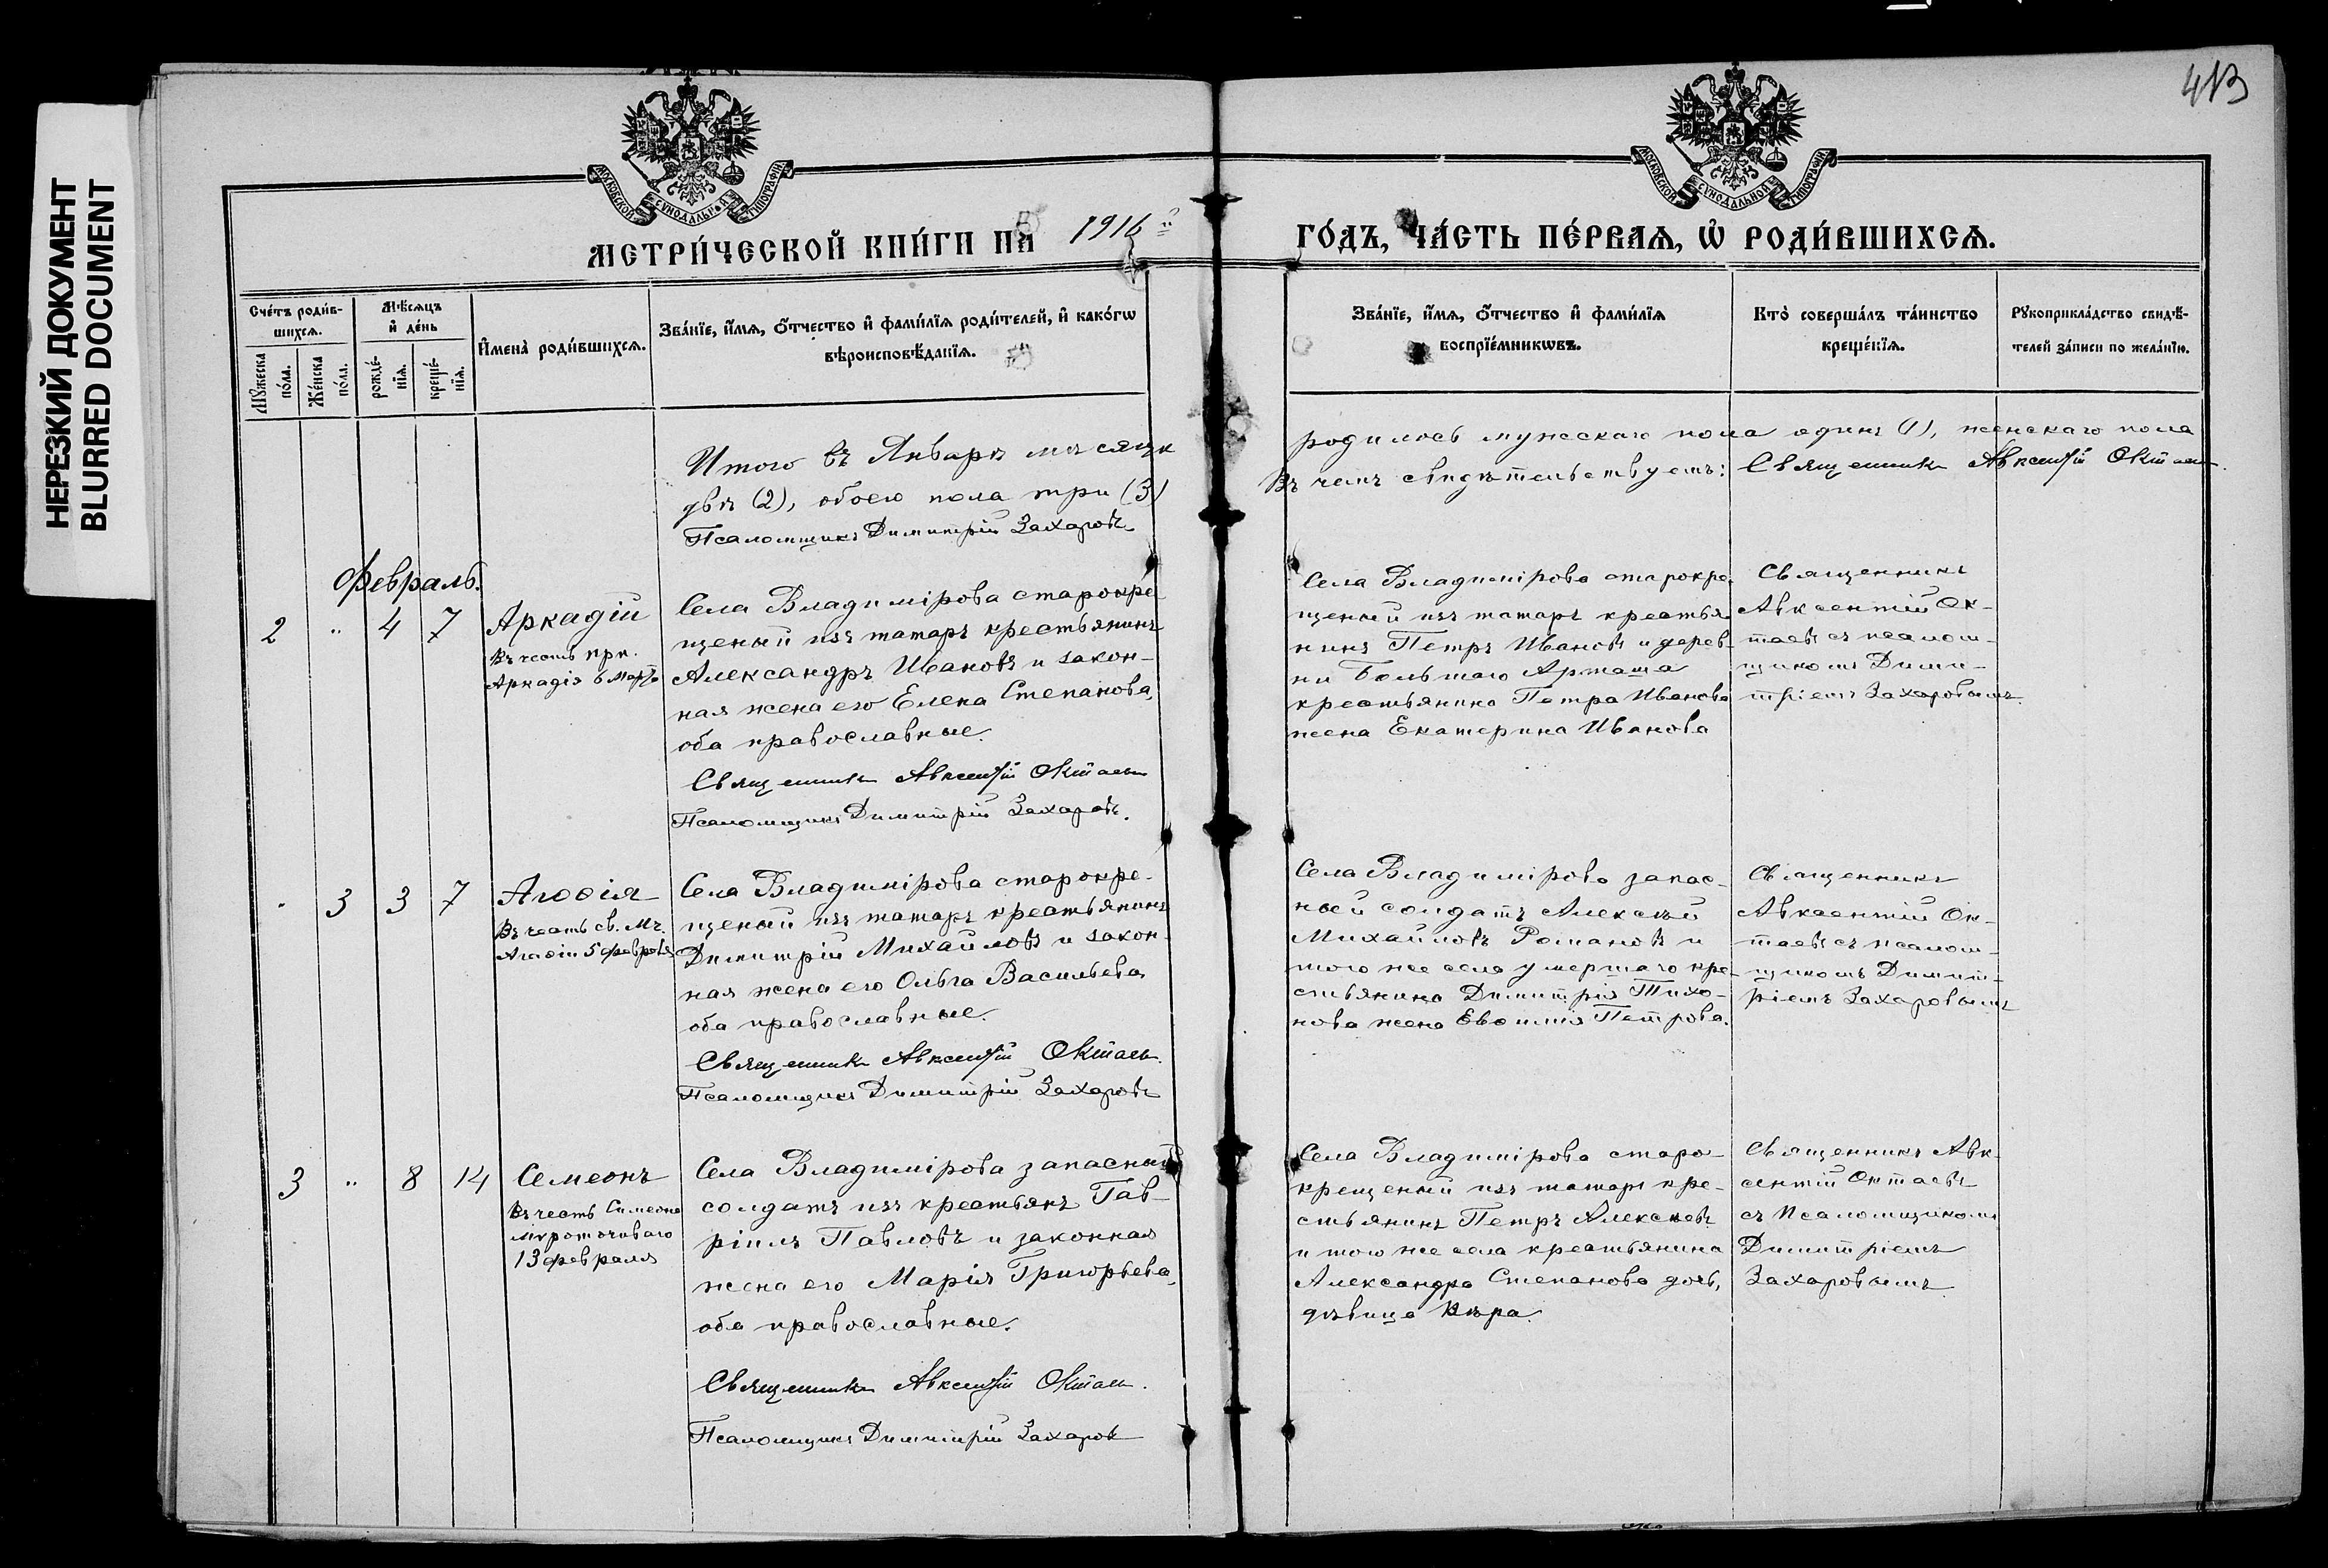 НЕРЕЗКИЙ ДОКУМЕНТ
BLURRED DOCUMENT
413
МОСКОВСКОЙ СѴНОДАЛЬНОЙ ТИПОГРАФІИ
МОСКОВСКОЙ СѴНОДАЛЬНОЙ ТИПОГРАФІИ
МЕТРИ́ЧЕСКОЙ КНИ́ГИ НА 1916й
ГО́ДЪ, ЧА́СТЬ ПЕ́РВАЯ, Ѡ҆ РОДИ́ВШИХСЯ.
Сче́тъ роди́в-
шихся.
Мѣ́сяцъ
и҆ де́нь
Мꙋжеска
по́ла.
Же́нска
по́ла.
рожде́-
нїя.
креще́-
нїя.
И҆мена̀ роди́вшихся.
Зва́нїе, и҆́мя, ѻ҆́тчество и҆ фами́лїя роди́телей, и҆ како́гѡ
вѣроисповѣ́данїя.
Зва́нїе, и҆́мя, ѻ҆́тчество и҆ фами́лїя
воспрїе́мникѡвъ.
Кто̀ соверша́лъ та́инство
креще́нїя.
Рꙋкоприкла́дство свидѣ́-
телей за́писи по жела́нїю.
Итого въ Январѣ мѣсяцѣ
родилось мужескаго пола одинъ (1), женскаго пола
двѣ (2), обоего пола три (3)
Въ чемъ свидѣтельствуемъ: Священникъ Авксентій Октаевъ.
Псаломщикъ Димитрій Захаровъ
Февраль.
2 " 4 7
Аркадій
Въ честь прп.
Аркадія 6 Марта
Села Владимірова старокре-
щеный изъ татаръ крестьянинъ
Александръ Ивановъ и закон-
ная жена его Елена Степанова,
оба православные.
Священникъ Авксентій Октаевъ
Псаломщикъ Димитрій Захаровъ.
Села Владимірова старокре-
щеный изъ татаръ крестья-
нинъ Петръ Ивановъ и дерев-
ни Большаго Арташа
крестьянина Петра Иванова
жена Екатерина Иванова
Священникъ
Авксентій Ок-
таевъ съ псалом-
щикомъ Дими-
тріемъ Захаровымъ.
" 3 3 7
Агаѳія
Въ честь св. Мч.
Агаѳіи 5 февраля
Села Владимірова старокре-
щеный изъ татаръ крестьянинъ
Димитрій Михайловъ и закон-
ная жена его Ольга Васильева
оба православные.
Священникъ Авксентій Октаевъ.
Псаломщикъ Димитрій Захаровъ
Села Владимірова запас-
ный солдатъ Алексѣй
Михайловъ Романовъ и
того же села умершаго кре-
стьянина Димитрія Тихо-
нова жена Евѳимія Петрова.
Священникъ
Авксентій Ок-
таевъ съ псалом-
щикомъ Димит-
ріемъ Захаровымъ
3 " 8 14
Семеонъ
Въ честь Симеона
мѵроточиваго
13 февраля
Села Владимірова запасный
солдатъ изъ крестьянъ Гав-
ріилъ Павловъ и законная
жена его Марія Григорьева,
оба православные.
Священникъ Авксентій Октаевъ.
Псаломщикъ Димитрій Захаровъ
Села Владимірова старо-
крещеный изъ татаръ кре-
стьянинъ Петръ Алексѣевъ
и того же села крестьянина
Александра Степанова дочь,
дѣвица Вѣра.
Священникъ Авк-
сентій Октаевъ
съ Псаломщикомъ
Димитріемъ
Захаровымъ